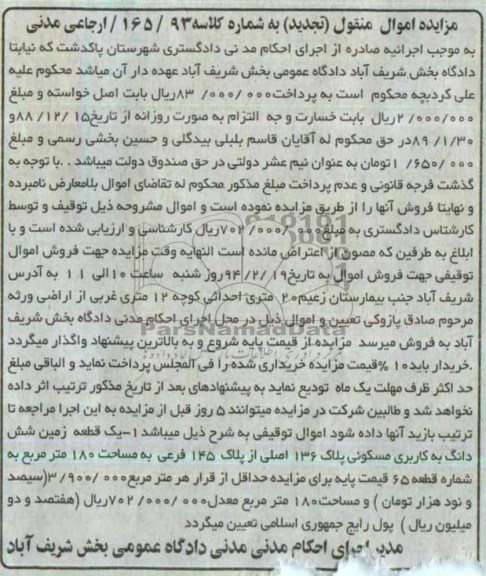 مزایده اموال منقول (تجدید) به شماره کلاسه ۹۳ / ۱۶۵ / ارجاعی مدنی
به موجب اجرائیه صادره از اجرای احکام مد نی دادگستری شهرستان پاکدشت که نیابتا
دادگاه بخش شریف آباد دادگاه عمومی بخش شریف آباد عهده دار آن میاشد محکوم علیه
علی کردبچه محکوم است به پرداخت ۰۰۰ /۰۰۰/ ۸۳ریال بابت اصل خواسته و مبلغ
۰۰۰/۰۰۰/ ۲ریال بابت خسارت و جه التزام به صورت روزانه از تاریخ ۱۵/ ۱۲/ ۸۸ و
۸۹/۱/۳۰در حق محکوم له آقایان قاسم بلبلی بیدگلی و حسین بخشی رسمی و مبلغ
۰۰۰ /۶۵۰/ ۱تومان به عنوان نیم عشر دولتی در حق صندوق دولت میباشد . .با توجه به
گذشت فرجه قانونی و عدم پرداخت مبلغ مذکور محکوم له تقاضای اموال بلامعارض نامبرده
و نهایتا فروش آنها را از طریق مزایده نموده است و اموال مشروحه ذیل توقیف و توسط
کارشناس دادگستری به مبلغ ۰۰۰ /۰۰۰/ ۷۰۲ریال کارشناسی و ارزیابی شده است و با
ابلاغ به طرفین که مصون از اعتراض مانده است النهایه وقت مزایده جهت فروش اموال
توقیفی جهت فروش اموال به تاریخ ۱۹/ ۲/ ۹۴روز شنبه ساعت ۱۰الی ۱۱ به آدرس
شریف آباد جنب بیمارستان زعیم ۲۰ متری احداثی کوچه ۱۲ متری غربی از اراضی ورثه
مرحوم صادق پازوکی تعیین و اموال ذیل در محل اجرای احکام مدنی دادگاه بخش شریف
آباد به فروش میرسد مزایده از قیمت پایه شروع و به بالاترین پیشنهاد واگذار میگردد
.خریدار باید ۱۰ %قیمت مزایده خریداری شده را فی المجلس پرداخت نماید و الباقی مبلغ
حد اکثر ظرف مهلت یک ماه تودیع نماید به پیشنهادهای بعد از تاریخ مذکور ترتیب اثر داده
نخواهد شد و طالبین شرکت در مزایده میتوانند ۵ روز قبل از مزایده به این اجرا مراجعه تا
ترتیب بازید آنها داده شود اموال توقیفی به شرح ذیل میباشد ۱-یک قطعه زمین شش
دانگ به کاربری مسکونی پلاک ۱۳۶ اصلی از پلاک ۱۴۵ فرعی به مساحت ۱۸۰ متر مربع به
شماره قطعه ۶۵ قیمت پایه برای مزایده حداقل از قرار هر متر مربع ۰۰۰ /۹۰۰/ ۳(سیصد
و نود هزار تومان ) و مساحت ۱۸۰ متر مربع معدل ۰۰۰ /۰۰۰/ ۷۰۲ریال (هفتصد و دو
میلیون ریال ) پول رایج جمهوری اسلامی تعیین میگردد
مدیر اجرای احکام مدنی مدنی دادگاه عمومی بخش شریف آباد
ParsNamadData